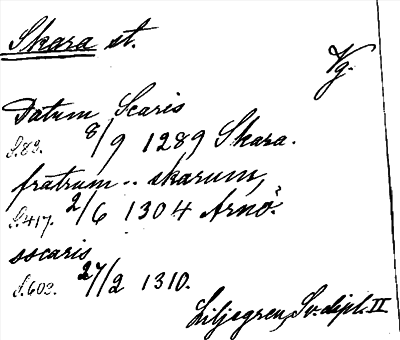 Skara st.
Vg.
Datum Scaris
S. 83. 8/9 1289 Skara.
fratrum .. skarum,
S. 417. 2/6 1304 Arnö.
sscaris
S. 603. 27/2 1310.
Liljegren, Sv. dipl. II